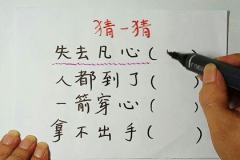 猜一猜
失去凡心(  )
人都到了(  )
一箭穿心(  )
拿不出手(  )